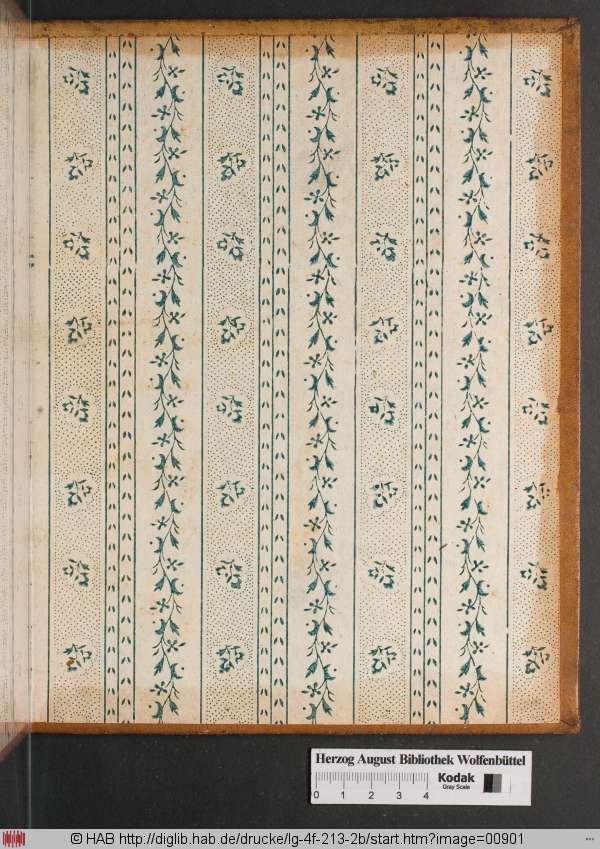 Herzog August Bibliothek Wolfenbüttel
0 1 2 3 4
Kodak
Gray Scale
© HAB http://diglib.hab.de/drucke/lg-4f-213-2b/start.htm?image=00901